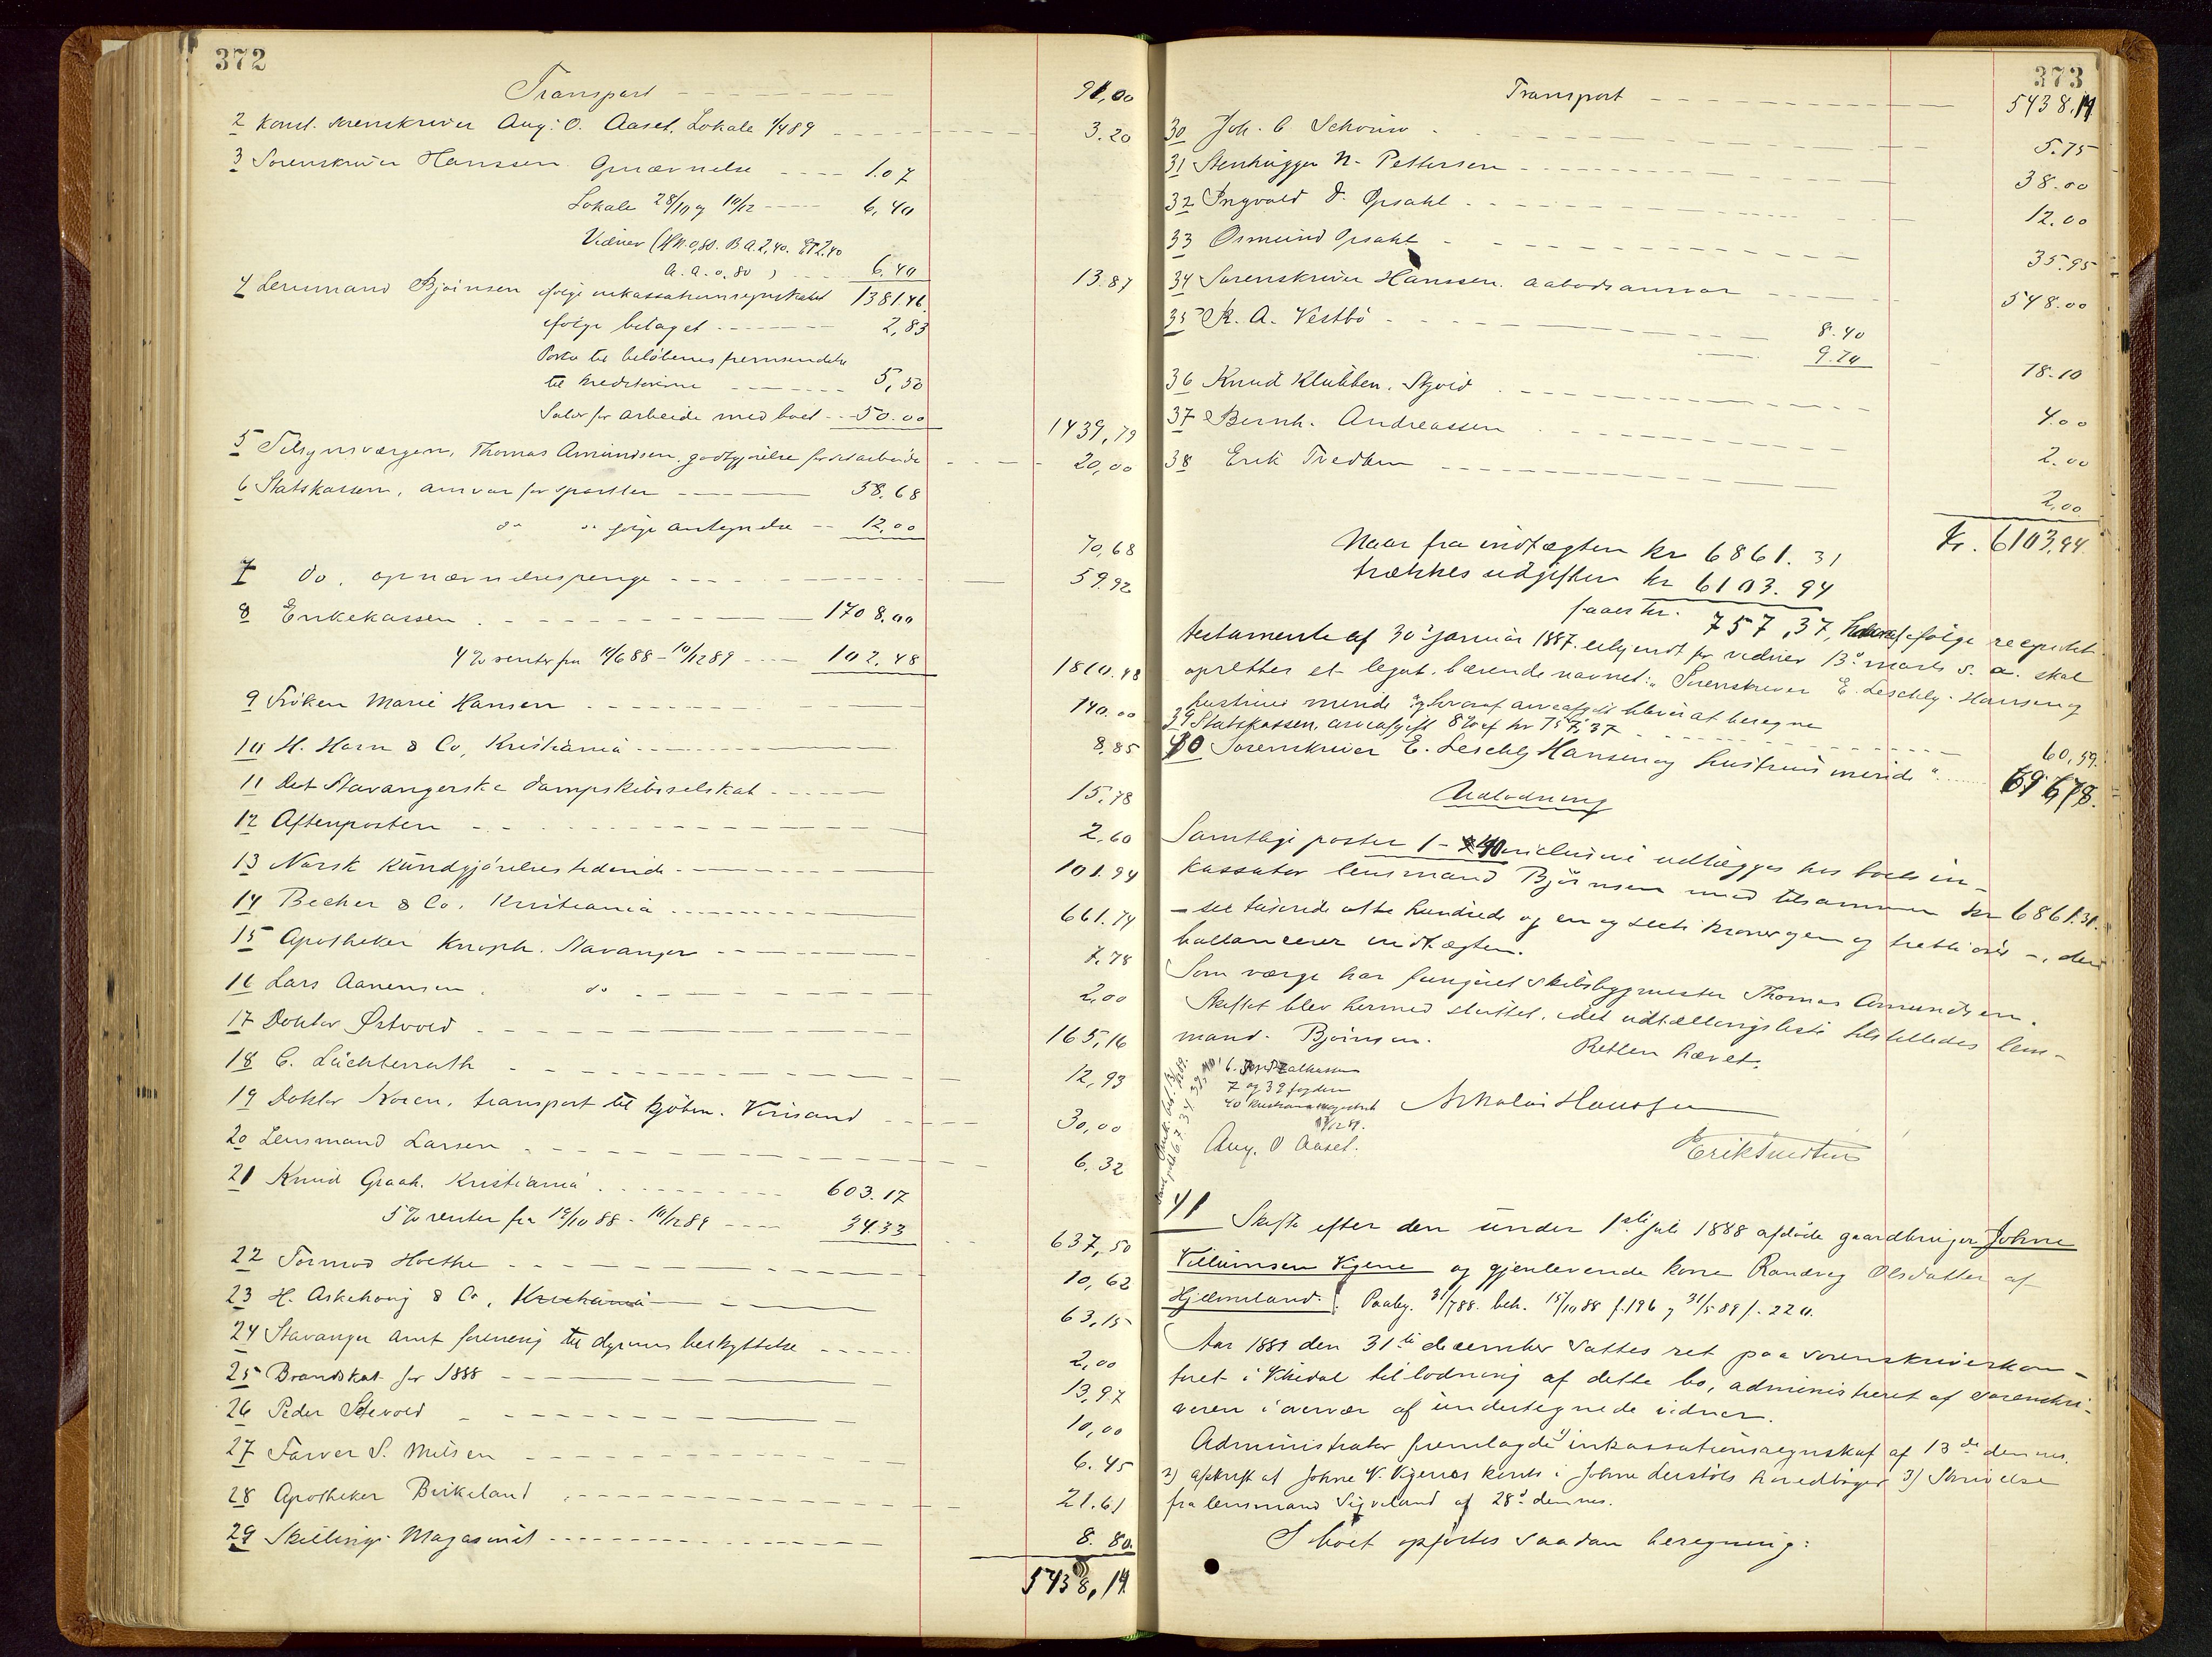 372
Transport 91,00
2 Konst. sorenskriver Aug. O. Aaset. Lokale 1/4 89 3.20
3 Sorenskriver Hanssen Opnævnelse 1.07
Lokale 28/10 og 10/12 6,40
Vidner (HN. 0,80. B A. 2,40. ET 2.40
A. A. 0,80) 6,40
13.87
4 Lensmand Bjørnsen ifølge inkassationsregnskabet 1381.46
ifølge bilaget 2,83
Porto til beløbenes fremsendelse
til kreditorerne 5,50
Salær for arbeide med boet 50.00
1439,79
5 Tilsynsværgen, Thomas Amundsen, godtgjørelse for sit arbeide 20,00
6 Statskassen, ansvar for sportler 58.68
do do ifølge antegnelse 12,00
70,68
7 do. opnævnelsespenge 59.92
8 Enkekassen 1708.00
4 % renter fra 11/6 88 - 10/12 89 102.48
1810.48
9 Frøken Marie Hansen 140.00
10 H. Horn & Co, Kristiania 8.85
11 Det Stavangerske dampskibsselskab 15,78
12 Aftenposten 2,60
13 Norsk Kundgjørelsestidende 101.94
14 Becher & Co. Kristiania 661.74
15 Apotheker Knoph. Stavanger 7.78
16 Lars Aanensen do 2,00
17 Doktor Østvold 165,16
18 C. Lüchterrath 12,93
19 Doktor Koren, transport til kjøbm. Virisand 30,00
20 Lensmand Larsen 6.32
21 Knud Graah. Kristiania 603.17
5 % renter fra 19/10 88 - 10/12 89 34.33
637,50
22 Tormod Hoethe 10,62
23 H. Askehoug & Co, Kristiania 63,15
24 Stavanger amt forening til dyrenes beskyttelse 2,00
25 Brandskat for 1888 13,97
26 Peder Stevold 10,00
27 Farver S. Nilsen 6.45
28 Apotheker Birkeland 21.61
29 Skillings Magasinet 8.80
5438,14
373
Transport 5438.14
30 Joh. C Schouw 5.75
31 Stenhugger N. Pettersen 38.00
32 Ingvald O. Opsahl 12.00
33 Osmund Opsahl 35.95
34 Sorenskriver Hanssen. aabodsansvar 548.00
35 R. A. Vestbø 8.40
9.70
18.10
36 Knud Klubben. Styvid 4.00
37 Bernh. Andreassen 2.00
38 Erik Tvedten 2,00
kr. 6103,94
Naar fra indtægten kr 6861.31
trækkes udgiften kr 6103.94
faaes kr. 757,37, hvoraf ifølge
testamente af 30' Januar 1887. for vidner 13' marts s. a. skal
oprettes et legat. bærende navnet: "Sorenskriver E. Leschly-Hanssen og
hustrues minde" og hvoraf arveafgift bliver at beregne
39 Statskassen, arveafgift 8 % af kr 757,37 60,59.
40 Sorenskriver E. Leschly Hansen og hustrues minde" 696,78.
Udlodning
Samtlige poster 1-40 inclusive udlægges hos boets in-
kassator lensmand Bjørnsen med tilsammen kr 6861.31.
- sex tusinde otte hundrede og en og sexti kroner og en og tretti øre -, der
ballancerer indtægten.
Som værge har fungeret skibsbygmester Thomas Amundsen.
Skiftet blev hermed sluttet, idet udtællingsliste tilstilledes lens-
mand Bjørnsen. Retten hævet.
7 og 39 fogden
40 Kristiania magistrat
Nikolai Hanssen
Aug. O Aaset.
Erik Tvedten
41 Skifte efter den under 1ste juli 1888 afdøde gaardbruger Johne
Villumsen Vigene og gjenlevende kone Randveg Olsdatter af
Hjelmeland. Paabeg. 31/7 88. beh. 15/10 88 f. 196 og 31/5 89 f. 220.
Aar 1889 den 31te december sattes ret paa sorenskriverkon-
toret i Vikedal til lodning af dette bo, administreret af sorenskri-
veren i overvær af undertegnede vidner.
Administrator fremlagde 1) inkassationsregnskab af 13de dennes.
2) afskrift af Johne V. Vigenes konto i Johne handbøger 3) Skrivelse
fra lensmand Sigveland af 28' dennes.
I boet opførtes saadan beregning: